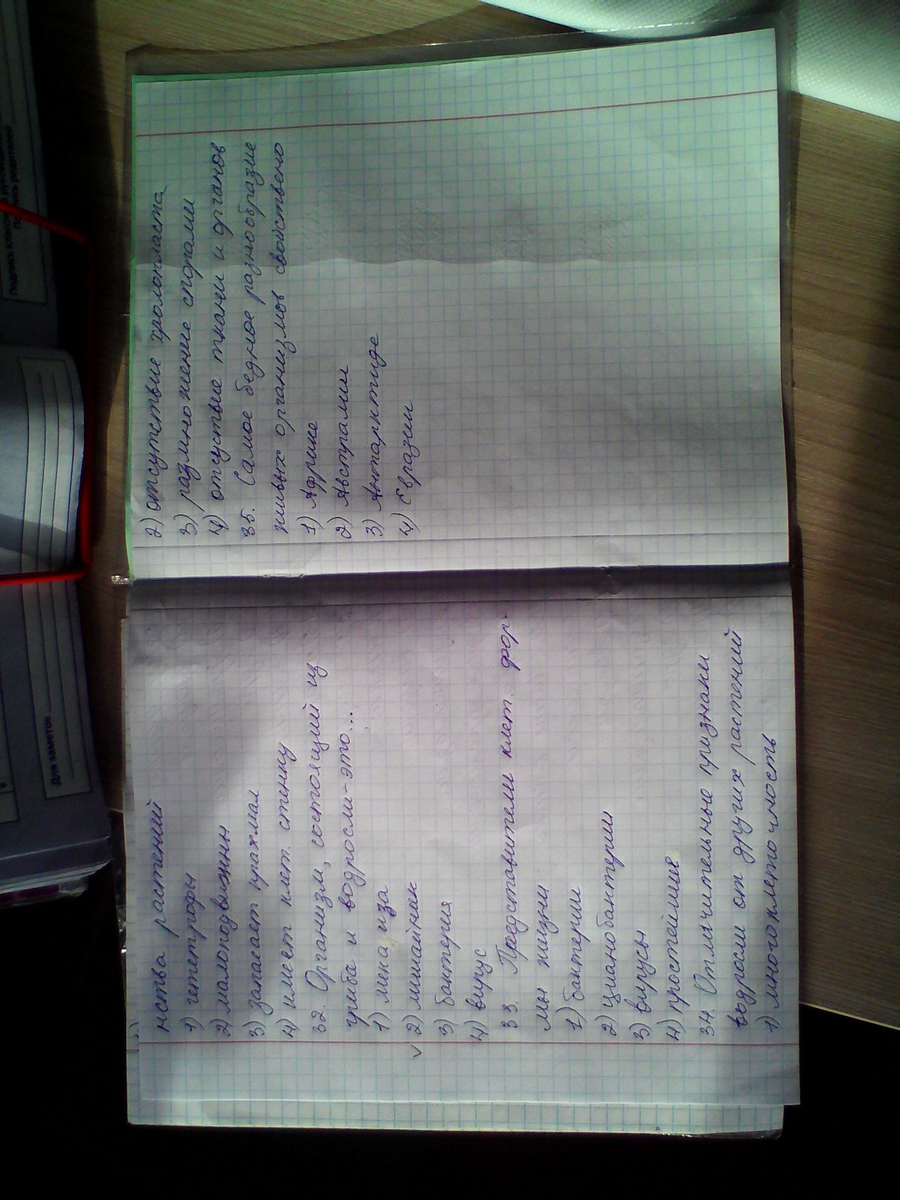 нства растений
1) гетегрофы
2) малоподвижны
3) запасает крахмал
4) имеет клет. стенку
32. Организм, состоящий из
гриба и водросли-это...
1) мика иза
v 2) лишайник
3) бактерия
4) вирус
33. Представители клет. фор-
мы жизни
1) бактерии
2) цианобактерии
3) вирусы
4) простейшие
34. Отличительные признаки
водросли от других растений
1) многоклеточность
2) отсутствие хролопласта
3) размножение спорами
4) отсуствие ткани и органов
35. Самое бедное разнообразие
живых организмов свойствено
1) Африке
2) Австралии
3) Антарктиде
4) Евразии
Для заметок
Подпись родителей